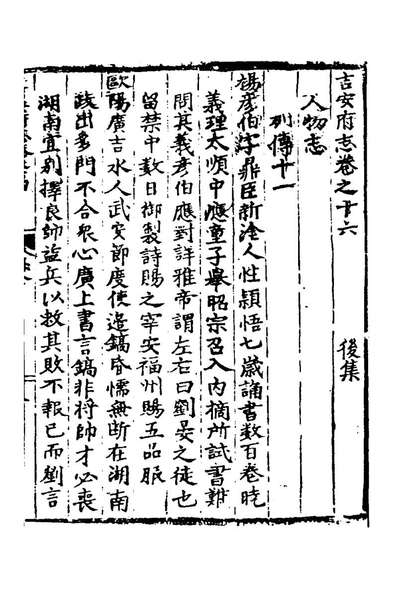 吉安府志卷之十六　後集
人物志
列傳十一
楊彥伯字鼎臣新淦人性穎悟七歲誦書數百卷曉
義理太順中應童子舉昭宗召入內摘所試書難
問其義彥伯應對詳雅帝謂左右曰劉晏之徒也
留禁中數日御製詩賜之宰安福州賜五品服
歐陽廣吉水人武安節度使邊鎬昏懦無斷在湖南
政出多門不合衆心廣上書言鎬非将帥才必喪
湖南宜別擇良帥益兵以救其敗不報已而劉言